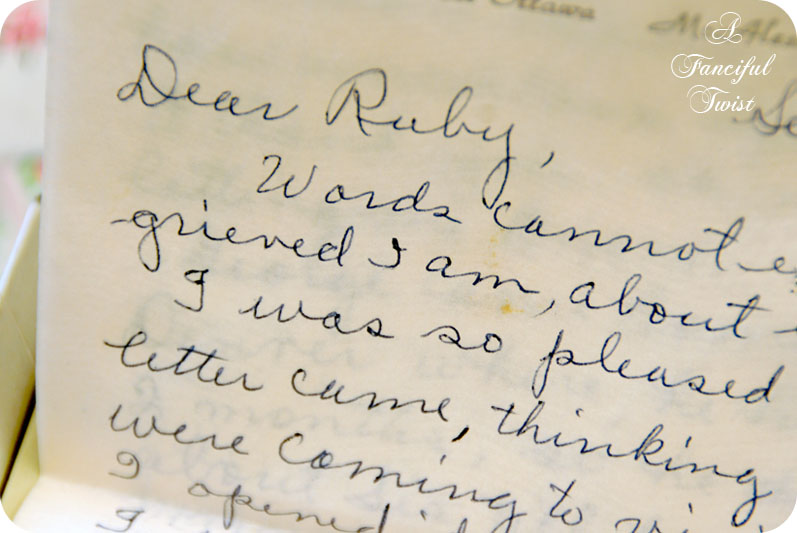 Ottawa
A
Fanciful
Twist
Dear Ruby,
Words cannot
grieved I am, about
I was so pleased
letter came, thinking
were coming to
I opened
I